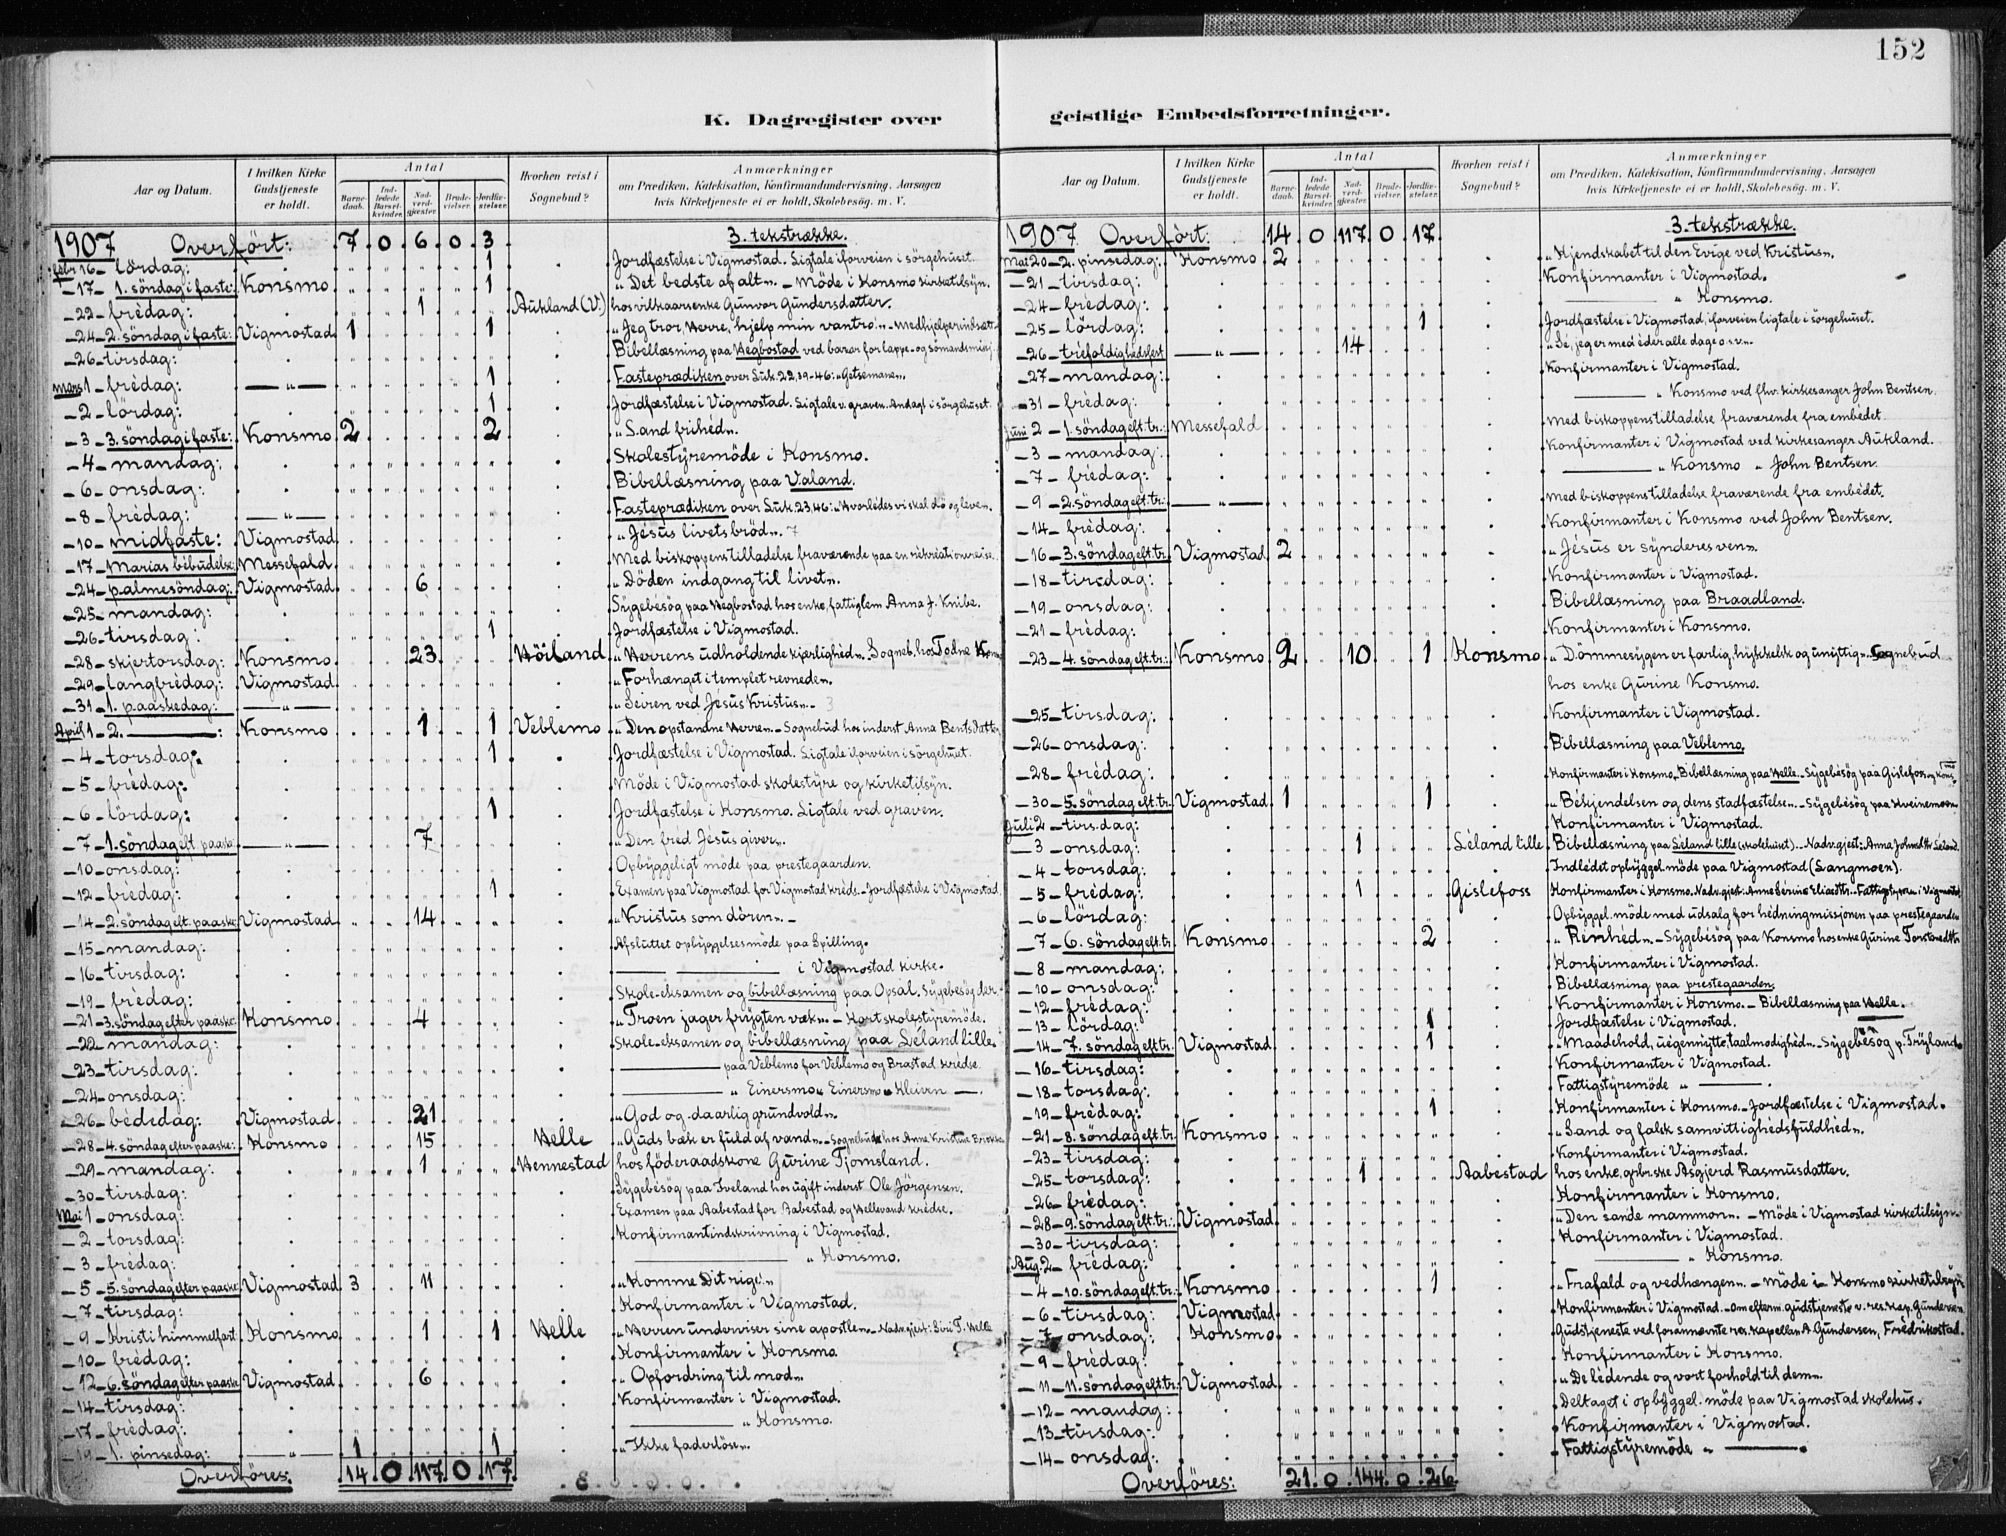 152
K. Dagregister over geistlige Embedsforretninger.
Aar og Datum. | I hvilken Kirke Gudstjeneste er holdt. | Antal | Barnedaab. | Indledede Barselkvinder. | Nadverdgjæster. | Brudevielser. | Jordfæstelser. | Hvorhen reist i Sognebud? | Anmærkninger om Prædiken, Katekisation, Konfirmandundervisning, Aarsagen hvis Kirketjeneste ei er holdt, Skolebesøg. m. V.
1907 Overført: 7 0 6 0 3 3. tekstrække.
febr 16 - lördag: 1 Jordfæstelse i Vigmostad. Ligtale iforveien i sörgehuset.
- 17 - 1. söndag i faste: Konsmo 1 "Det bedste af alt". - Möde i Konsmo kirketilsyn.
- 22 - frédag: 1 Aukland (V.) hos vilkaarsenke Gunvor Gundersdatter.
- 24 - 2. söndag i faste: Vigmostad 1 1 "Jeg tror, Herre, hjelp min vantro". - Medhjelper indsætt.
- 26 - tirsdag: Bibellæsning paa Hegbostad ved basar for lappe- og sömandsmisj.
mars 1 - frédag: - " - 1 Fasteprædiken over Luk 22,39-46: "Getsemane".
- 2 - lördag: 1 Jordfæstelse i Vigmostad. Ligtale v. graven. Andagt i sörgehuset.
- 3 - 3. söndag i faste: Konsmo 2 2 "Sand frihed".
- 4 - mandag: Skolestyremöde i Konsmo.
- 6 - onsdag: Bibellæsning paa Valand.
- 8 - frédag: - " - Fasteprædiken over Luk 23.46: "Hvorledes vi skal dö og leve".
- 10 - midfaste: Vigmostad "Jésus livets bröd".
- 17 - Marias bebudelse: Messefald Med biskoppens tilladelse fraværende paa en rekreationsreise.
- 24 - palmesöndag: Vigmostad 6 "Döden indgang til livet".
- 25 - mandag: Sygebesög paa Hegbostad hos enke, fattiglem Anna J. Knibe.
- 26 - tirsdag: 1 Jordfæstelse i Vigmostad.
- 28 - skjertorsdag: Konsmo 23 Höiland "Herrens udholdende kjærlighed". Sogneb. hos Todne
- 29 - langfrédag: Vigmostad "Forhænget i templet revnede".
- 31 - 1. paaskedag: - " - "Seiren ved Jésus Kristus".
April 1 - 2. -: Konsmo 1 1 Veblemo "Den opstandne Herre". - Sognebud hos inderst Anna Bentsdatter
- 4 - torsdag: 1 Jordfæstelse i Vigmostad. Ligtale iforveien i sörgehuset.
- 5 - frédag: Möde i Vigmostad skolestyre og kirketilsyn.
- 6 - lördag: 1 Jordfæstelse i Konsmo. Ligtale ved graven.
- 7 - 1. söndag eft paaske: - " - 7 "Den fred Jésus giver".
- 10 - onsdag: Opbyggeligt möde paa prestegaarden.
- 12 - fredag: 1 Examen paa Vigmostad for Vigmostad kréds. - Jordfæstelse i Vigmostad.
- 14 - 2. söndag eft. paaske: Vigmostad 14 "Kristus som dören".
- 15 - mandag: Afsluttet opbyggelsesmöde paa Spilling.
- 16 - tirsdag: - - i Vigmostad kirke.
- 19 - frédag: Skole-eksamen og bibellæsning paa Opsal. Sygebesög der.
- 21 - 3. söndag efter paaske: Konsmo 4 "Troen jager frygten væk". - Kort skolestyremöde.
- 22 - mandag: Skole-eksamen og bibellæsning paa Léland lille.
- 23 - tirsdag: - paa Veblemo for Veblemo og Brastad kredse.
- 24 - onsdag: - " Einersmo " Einersmo " Kleivn -.
- 26 - bédedag: Vigmostad 21 "God og daarlig grundvold".
- 28 - 4. söndag efter paaske: Konsmo 15 Helle "Guds bæk er fuld af vand". - Sognebud hos Anne Kristine
- 29 - mandag: 1 Hennestad hos föderaadskone Gurine Tjomsland.
- 30 - tirsdag: Sygebésög paa Iveland hos ugift inderst Ole Jörgensen.
Mai 1 - onsdag: Examen paa Aabestad for Aabestad og Hellevand krédse.
- 2 - torsdag: Konfirmantindskrivning i Vigmostad.
- 3 - frédag: - " Konsmo.
- 5 - 5. söndag efter paaske: Vigmostad 3 11 "Komme Dit rige!"
- 7 - tirsdag: Konfirmanter i Vigmostad.
- 9 - Kristi himmelfart: Konsmo 1 1 Helle "Herren underviser sine apostle". - Nadv.gjest: Siri T. Helle
- 10 - frédag: Konfirmanter i Konsmo.
- 12 - 6. söndag efter paaske: Vigmostad 6 "Opfordring til mod".
- 14 - tirsdag: Konfirmanter i Vigmostad.
- 17 - frédag: - " Konsmo.
- 19 - 1. pinsedag: - " - 1 1 "Ikke faderlöse".
Overföres: 14 0 117 0 17
Aar og Datum. | I hvilken Kirke Gudstjeneste er holdt. | Antal | Barnedaab. | Indledede Barselkvinder. | Nadverdgjæster. | Brudevielser. | Jordfæstelser. | Hvorhen reist i Sognebud? | Anmærkninger om Prædiken, Katekisation, Konfirmandundervisning, Aarsagen hvis Kirketjeneste ei er holdt, Skolebesög. m. V.
1907 Overført: 14 0 117 0 17 3. tekstrække.
Mai 20 - 2. pinsedag: Konsmo 2 "Kjendskabet til den Evige ved Kristus".
- 21 - tirsdag: Konfirmanter i Vigmostad.
- 24 - frédag: - " Konsmo.
- 25 - lördag: 1 Jordfæstelse i Vigmostad, iforveien ligtale i sörgehuset.
- 26 - tréfoldighedsfest - " - 14 "Se, jeg er med éder alle dage o.s.v."
- 27 - mandag: Konfirmanter i Vigmostad.
- 31 - frédag: - " Konsmo ved fhv. kirkesanger John Bentsen.
Juni 2 - 1. söndag eft. tr.: Messefald Med biskoppens tilladelse fraværende fra embédet.
- 3 - mandag: Konfirmanter i Vigmostad ved kirkesanger Aukland.
- 7 - frédag: - " Konsmo " John Bentsen.
- 9 - 2. söndag eft. tr.: - " - Med biskoppens tilladelse fraværende fra embédet.
- 14 - frédag: Konfirmanter i Konsmo ved John Bentsen.
- 16 - 3. söndag eft. tr. Vigmostad 2 "Jésus er synderes ven".
- 18 - tirsdag: Konfirmanter i Vigmostad.
- 19 - onsdag: Bibellæsning paa Braadland.
- 21 - frédag: Konfirmanter i Konsmo.
- 23 - 4. söndag eft. tr.: Konsmo 2 10 1 Konsmo "Dömmesygen er farlig, hykkelsk og unyttig". Sognebud
hos enke Gurine Konsmo.
- 25 - tirsdag: Konfirmanter i Vigmostad.
- 26 - onsdag: Bibellæsning paa Veblemo.
- 28 - frédag: Konfirmanter i Konsmo. Bibellæsning paa Helle. - Sygebésög paa Gislefoss og Konsmo
- 30 - 5. söndag eft. tr. Vigmostad 1 1 "Békjendelsen og dens stadfæstelse". - Sygebésög paa Kveinemoen
Juli 2 - tirsdag: Konfirmanter i Vigmostad.
- 3 - onsdag: 1 Léland lille Bibellæsning paa Léland lille (skolehuset). - Nadv.gjest:
- 4 - torsdag: Indledet opbyggel. möde paa Vigmostad (Langmoen).
- 5 - frédag: 1 Gislefoss Konfirmanter i Konsmo. Nadv.gjest:
- 6 - lördag: Opbyggel. möde med udsalg for hédningmissjonen paa prestegaarden
- 7 - 6. söndag eft. tr. Konsmo 2 "Renhéd". - Sygebésög paa Konsmo hos enke Gurine
- 8 - mandag: Konfirmanter i Vigmostad.
- 10 - onsdag: Bibellæsning paa prestegaarden.
- 12 - frédag: Konfirmanter i Konsmo. - Bibellæsning paa Helle.
- 13 - lördag: 1 Jordfæstelse i Vigmostad.
- 14 - 7. söndag eft. tr. Vigmostad 1 "Maadehold, uégennytte, taalmodighéd". - Sygebésög p. Tryland.
- 16 - tirsdag: Konfirmanter i Vigmostad.
- 18 - torsdag: Fattigstyremöde " -.
- 19 - frédag: 1 Konfirmanter i Konsmo. - Jordfæstelse i Vigmostad.
- 21 - 8. söndag eft. tr. Konsmo "Sand og falsk samvittighedsfuldhed".
- 23 - tirsdag: Konfirmanter i Vigmostad.
- 25 - torsdag: 1 Aabestad hos enke, Asgjerd Rasmusdatter.
- 26 - frédag: Konfirmanter i Konsmo.
- 28 - 9. söndag eft. tr.: Vigmostad "Den sande mammon". - Möde i Vigmostad kirketilsyn.
- 30 - tirsdag: Konfirmanter i Vigmostad.
Aug. 2 - frédag: - " Konsmo.
- 4 - 10. söndag eft. tr.: Konsmo 1 "Frafald og vedhængen". - Möde i Konsmo kirketilsyn
- 6 - tirsdag: Vigmostad Konfirmanter i Vigmostad. - Om efterm. gudstjeneste v. res. kap. Gundersen
- 7 - onsdag: Konsmo Gudstjeneste ved forannævnte res. kapellan A. Gundersen, Frédrikstad.
- 9 - frédag: Konfirmanter i Konsmo.
- 11 - 11. söndag eft. tr.: Vigmostad "De lédende og vort forhold til dem".
- 12 - mandag: Deltaget i opbyggel. möde paa Vigmostad skolehus.
- 13 - tirsdag: Konfirmanter i Vigmostad.
- 14 - onsdag: Fattigstyremöde " -.
Overföres: 21. 0. 144. 0. 26.